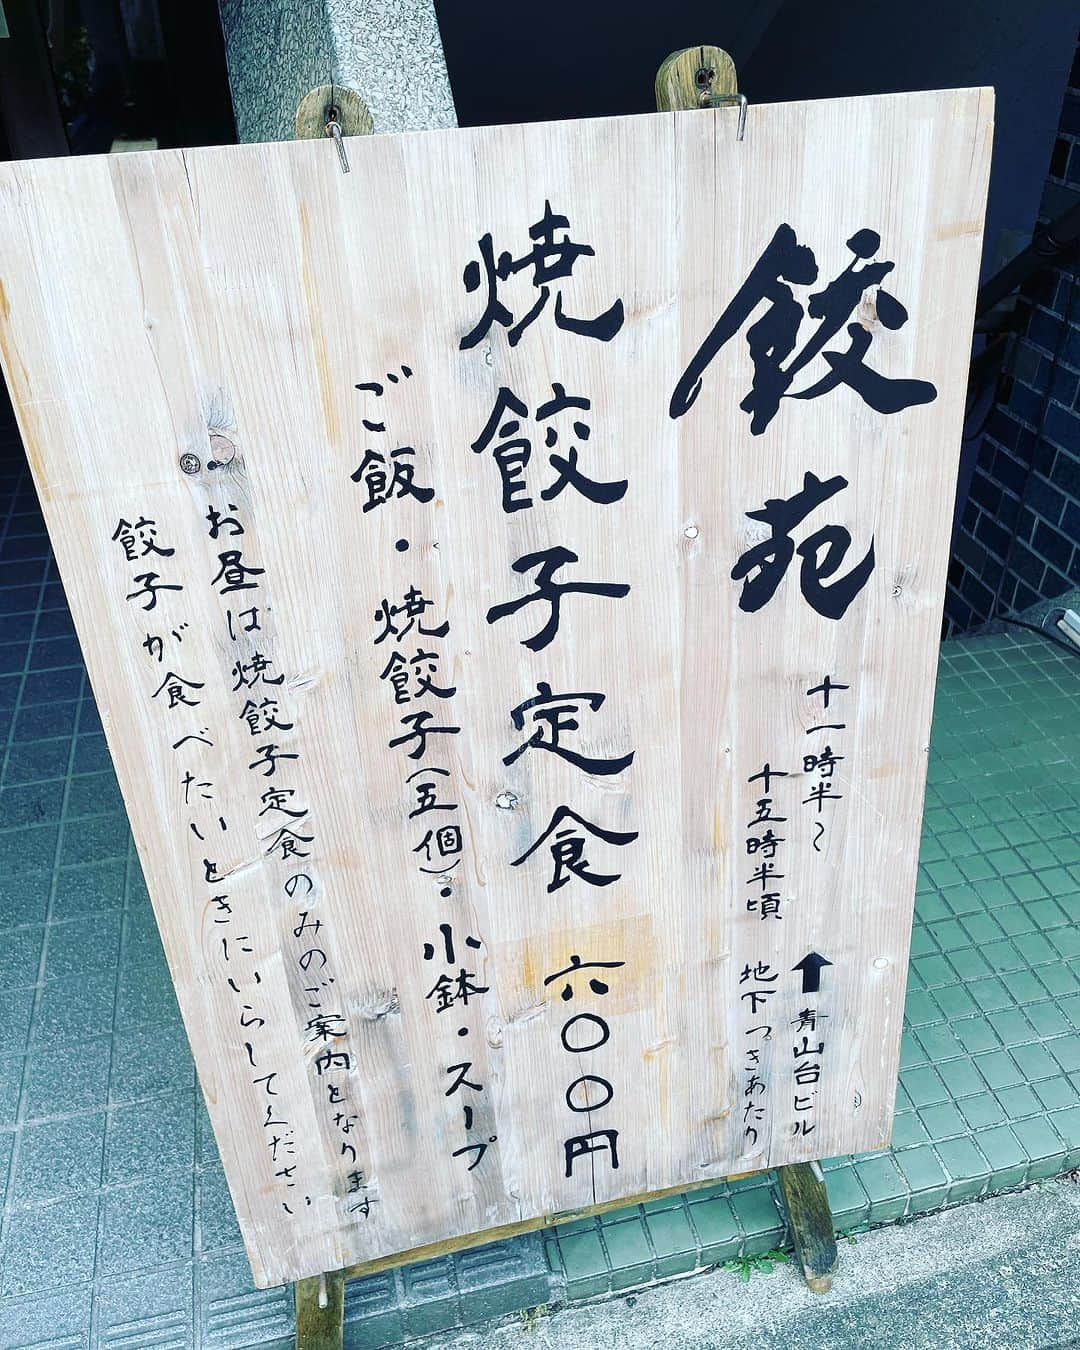 餃苑
十一時半〜
十五時半頃
↑青山台ビル
地下つきあたり
焼餃子定食 六〇〇円
ご飯・焼餃子(五個)・小鉢・スープ
お昼は焼餃子定食のみのご案内となります
餃子が食べたいときにいらしてください